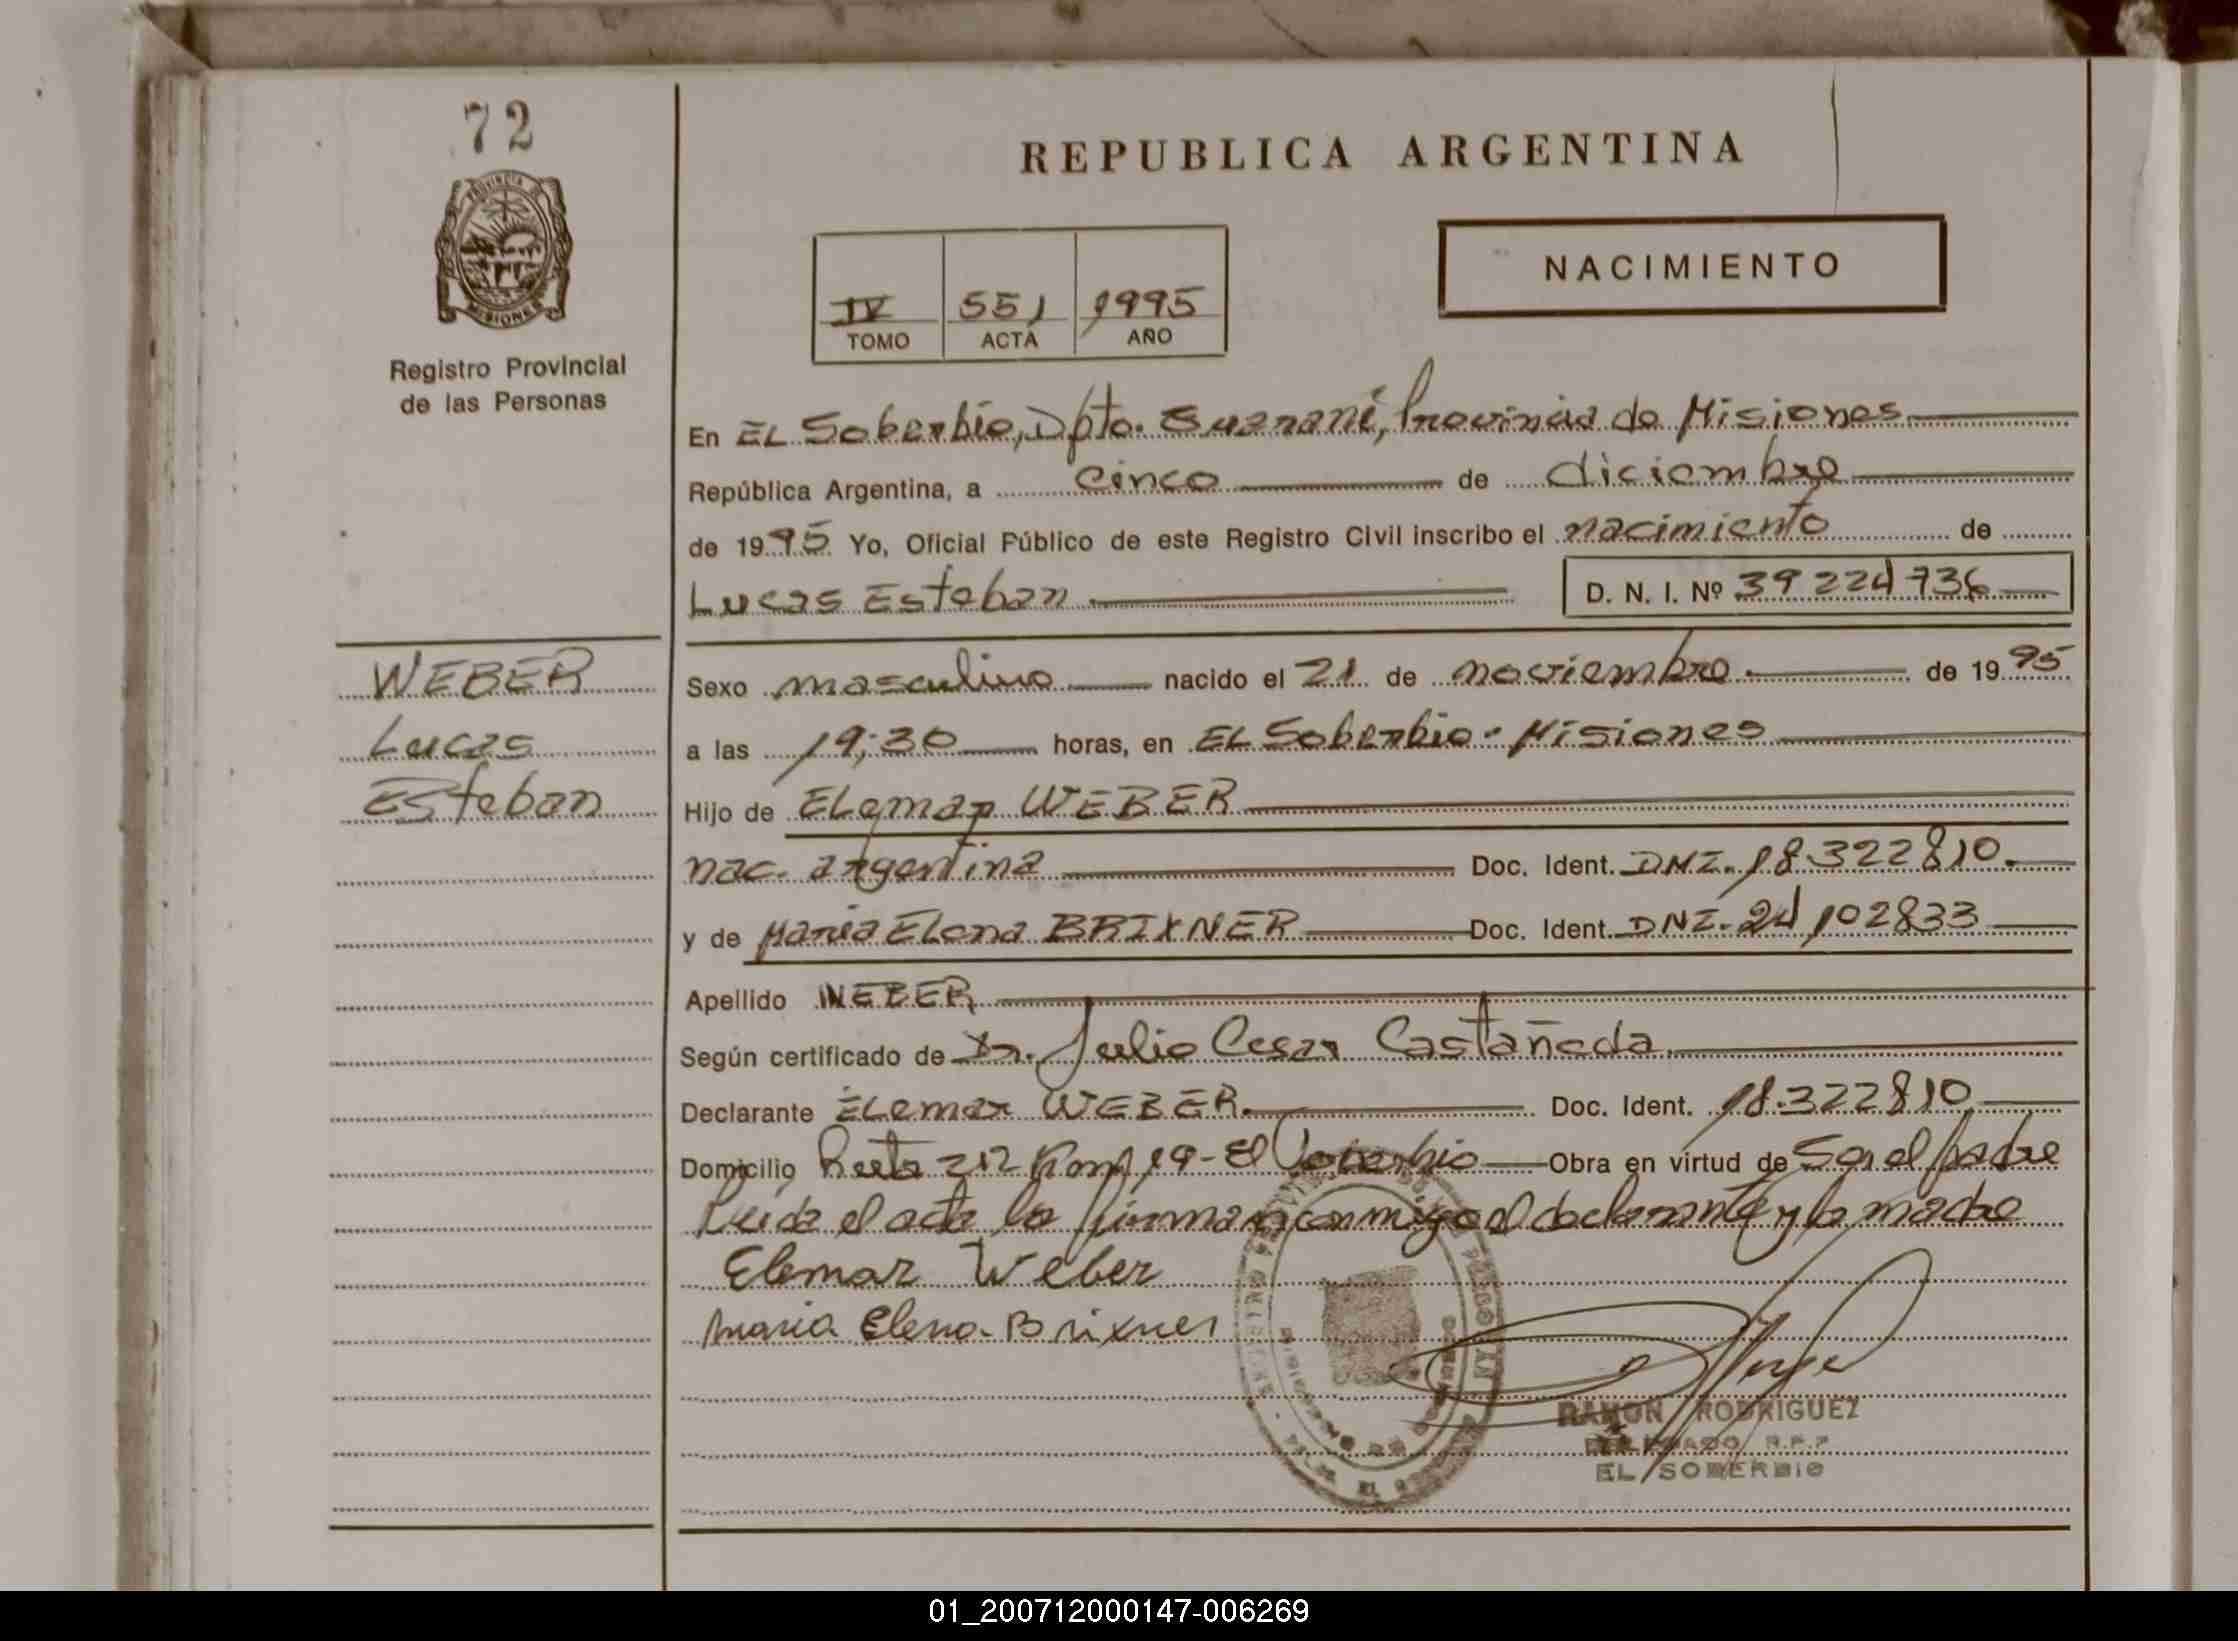 72
PROVINCIA DE
MISIONES
Registro Provincial
de las Personas
REPUBLICA ARGENTINA
NACIMIENTO
IV 551 1995
TOMO ACTA AÑO
En EL Soberbio, Dpto. Guaraní, Provincia de Misiones
República Argentina, a cinco de diciembre
de 1995 Yo, Oficial Público de este Registro Civil inscribo el nacimiento de
Lucas Esteban D. N. I. Nº 39224736
WEBER
Lucas
Esteban
Sexo masculino nacido el 21 de noviembre de 1995
a las 19;30 horas, en EL Soberbio - Misiones
Hijo de ELemar WEBER
nac. argentina Doc. Ident. DNI. 18.322810.
y de María ELena BRIXNER Doc. Ident. DNI. 24102833
Apellido WEBER
Según certificado de Dr. Julio Cesar Castañeda
Declarante ELemar WEBER. Doc. Ident. 18.322810
Domicilio Ruta 212 Km 19 - El Soberbio Obra en virtud de Ser el padre
Leida el acta la firman conmigo el declarante y la madre
Elemar Weber
Maria Elena Brixner
RAMON RODRIGUEZ
DELEGADO R.P.P
EL SOBERBIO
01_200712000147-006269